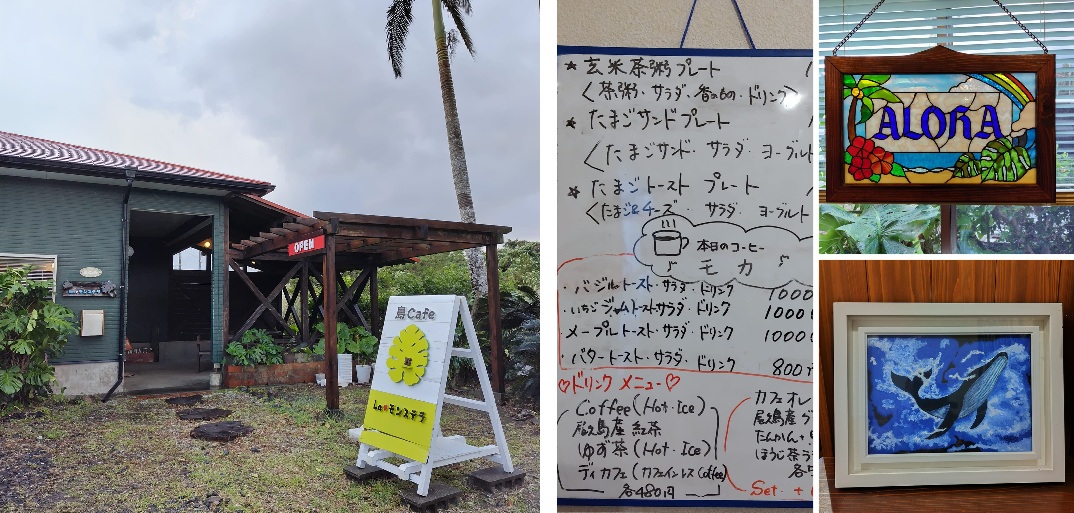 OPEN
島Cafe
La モンステラ
★ 玄米茶粥プレート
〈茶粥・サラダ・香のもの・ドリンク〉
★ たまごサンドプレート
〈たまごサンド・サラダ・ヨーグルト
★ たまごトースト プレート
〈たまご&チーズ・サラダ・ヨーグルト
本日のコーヒー
モカ
・バジルトースト・サラダ・ドリンク 1000
・いちごジャムトーストサラダ・ドリンク 1000
メープルトースト・サラダ・ドリンク 1000
・バタートースト・サラダ・ドリンク 800
♡ドリンク メニュー♡
Coffee(Hot・Ice)
屋久島産 紅茶
ゆず茶(Hot・Ice)
ディカフェ(カフェインレスCoffee)
各480円
カフェオレ
屋久島産
たんかん
ほうじ茶ラ
Set. +
ALOHA